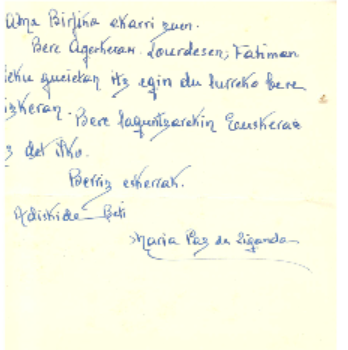 Ama Birjiña ekarri zuen.
Bere Agerkeran. Lourdesen, Fatiman
leku guzietan itz egin du lurreko bere
izkeran. Bere laguntzarekin Euskeraz
det itko.
Berriz eskerrak.
Adiskide Beti
Maria Paz de Ziganda